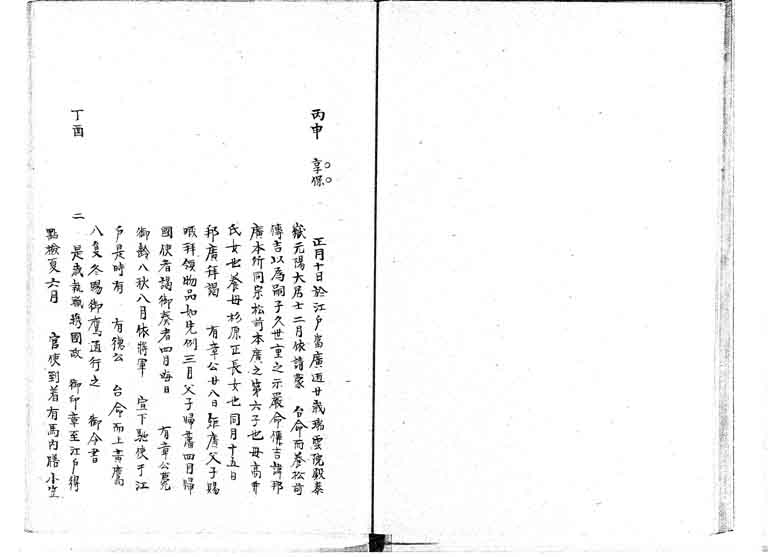 丙申 享保
正月十日於江戸富廣逝廿歳瑞雲院殿泰
嶽元陽大居士二月依請蒙 台命而養松前
傳吉以為嗣子久世重之示嚴命傳吉諱邦
廣本所同宗松前本廣之第六子也母高井
氏女也養母杉原正長女也同月十五日
邦廣拜謁 有章公廿八日 廣父子賜
暇拜領物品如先例三月父子歸舊四月歸
國使者謁御奏者四月晦日 有章公薨
御齡八秋八月依將軍 宣下馳使于江
戸是時有 有德公 台命而上黄鷹
八隻冬賜御鷹通行之 御令書
丁酉 二 是歳執職 國政 御印章至江戸得
點檢夏六月 官使到着有馬内膳小笠